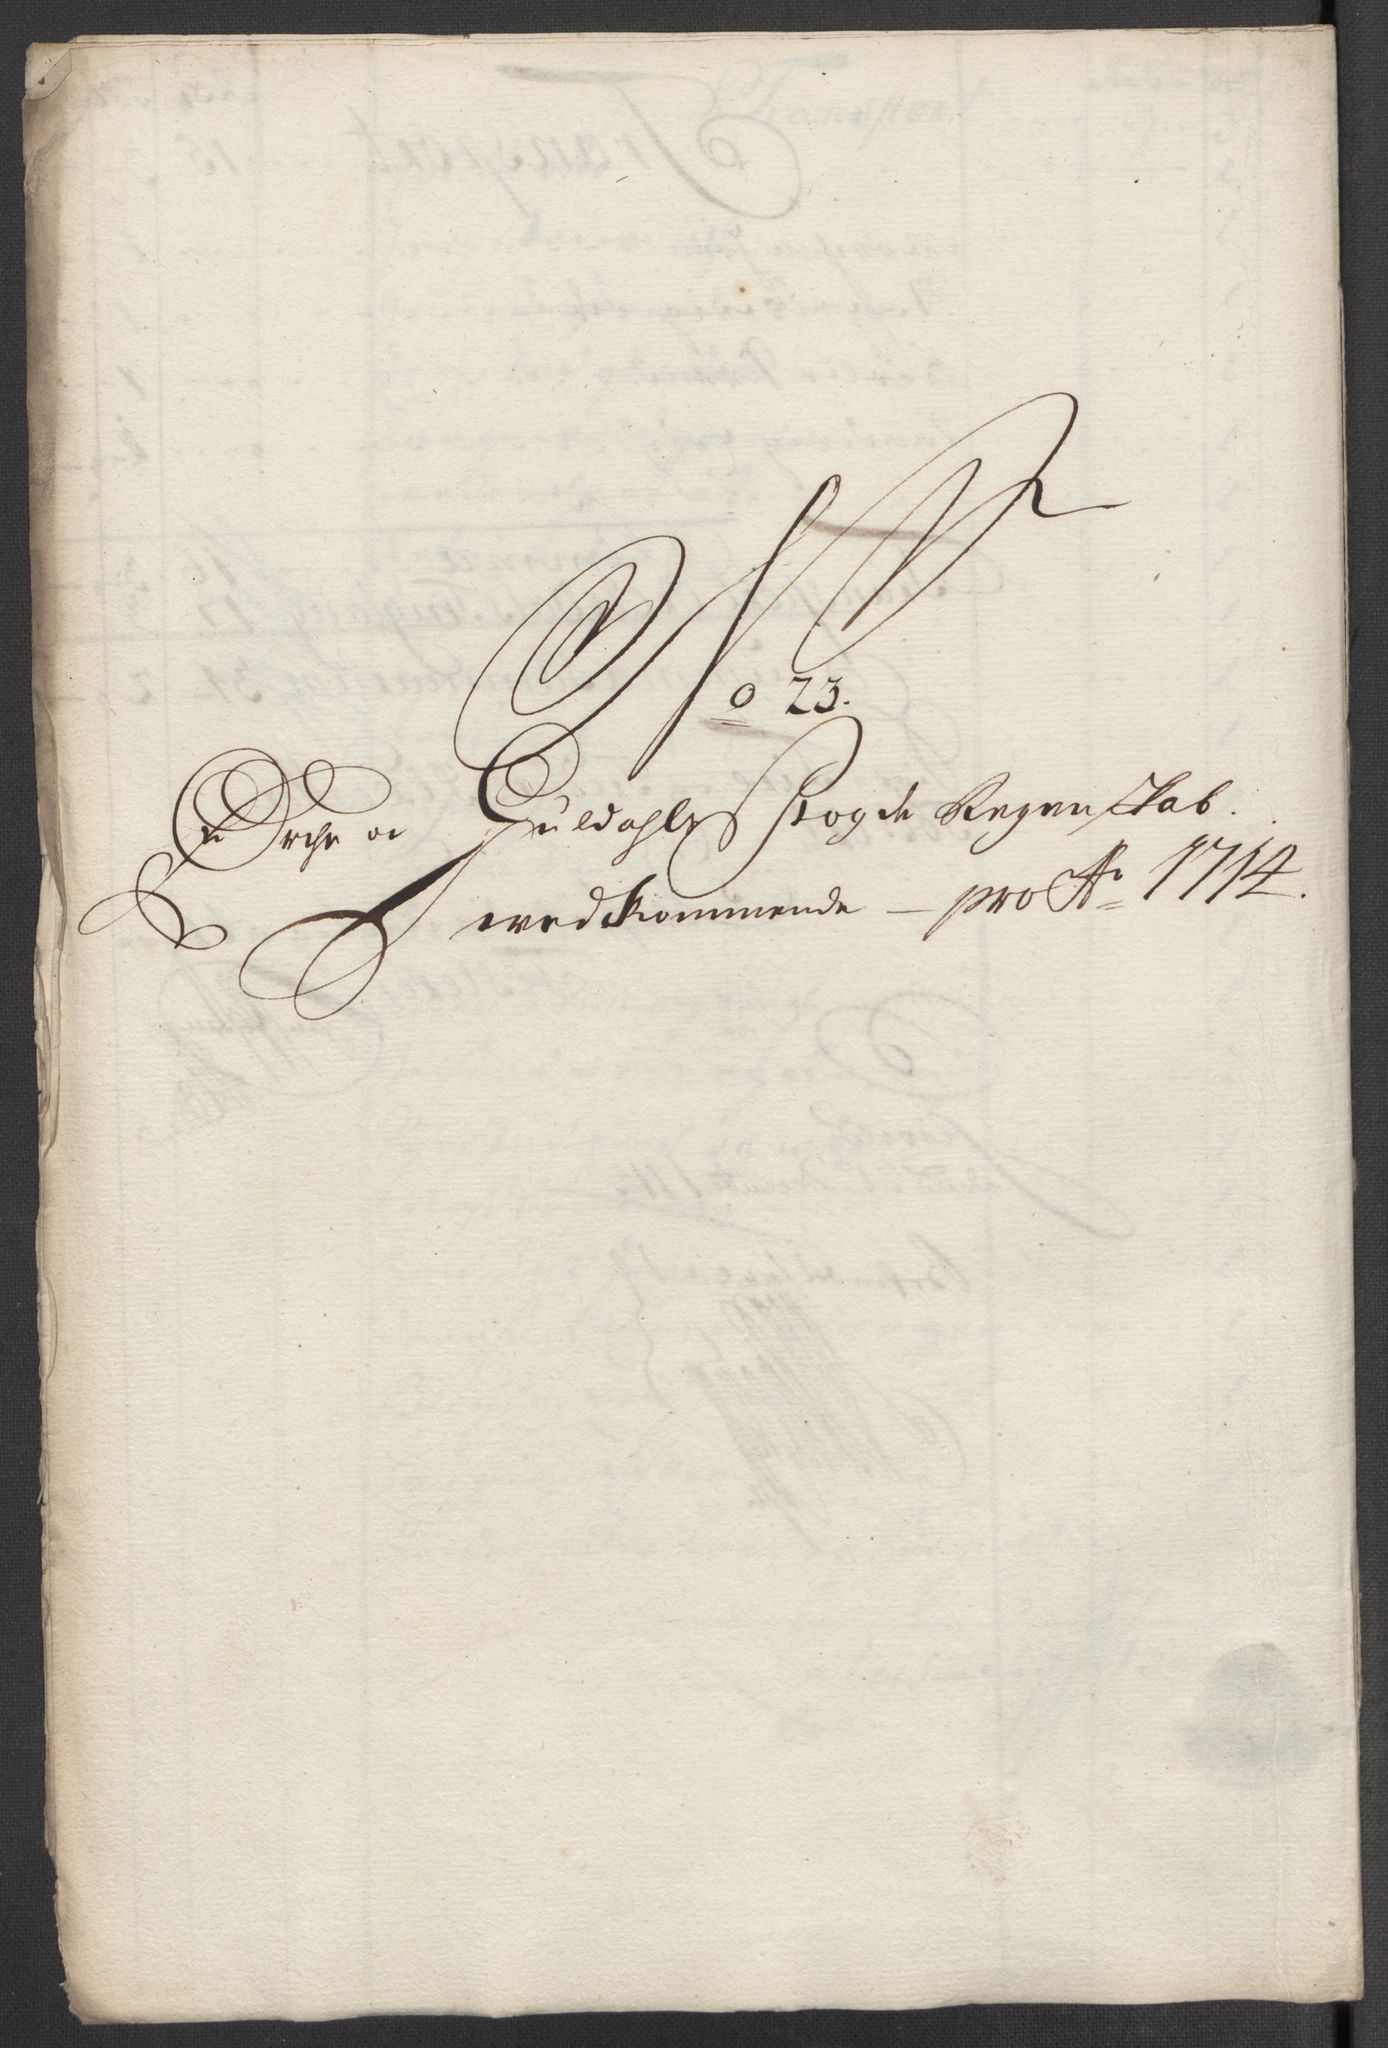 No 23.
Orche oc Guldahls Fogde Regenskab
vedkommende – pro Ao 1714.